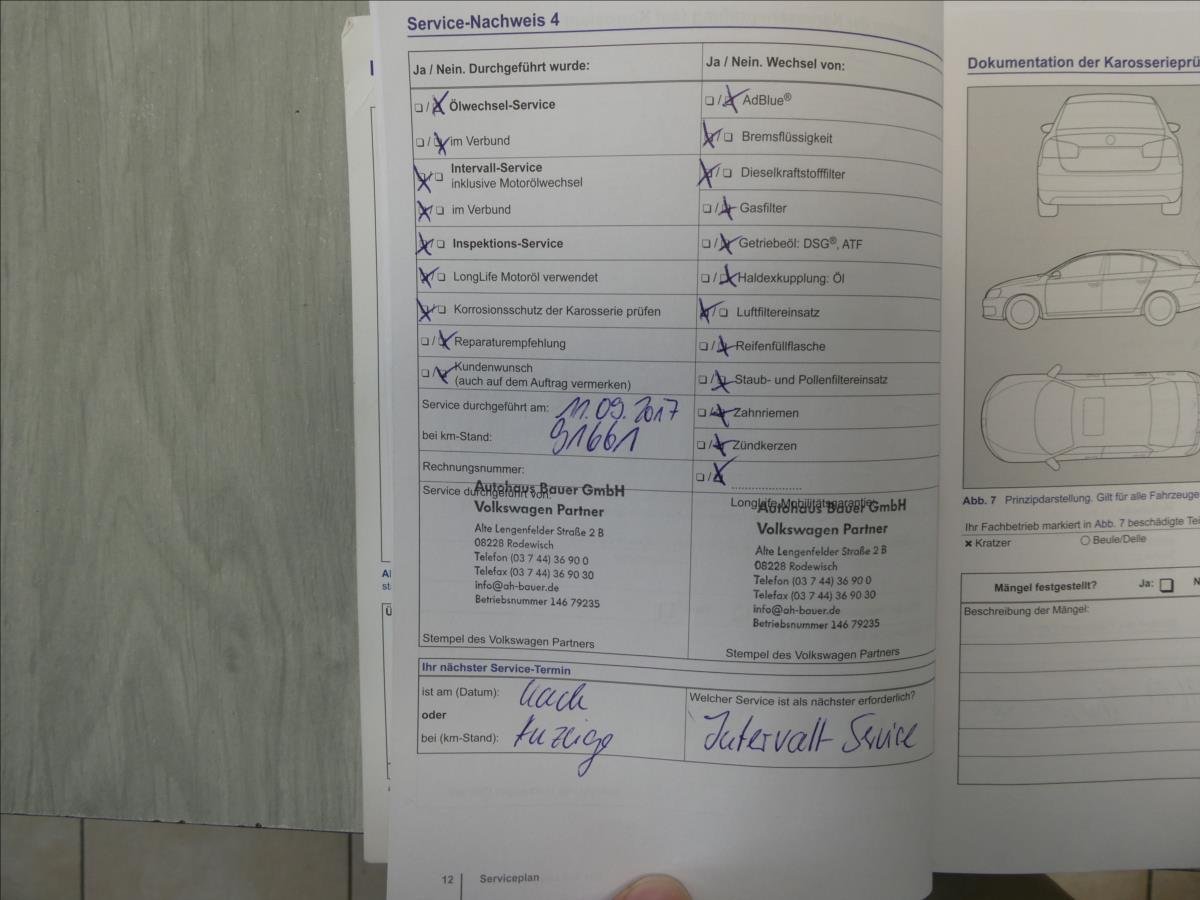 Service-Nachweis 4
Ja / Nein. Durchgeführt wurde:
❏ / ❏ Ölwechsel-Service
❏ / ❏ im Verbund
❏ / ❏ Intervall-Service
inklusive Motorölwechsel
❏ / ❏ im Verbund
❏ / ❏ Inspektions-Service
❏ / ❏ LongLife Motoröl verwendet
❏ / ❏ Korrosionsschutz der Karosserie prüfen
❏ / ❏ Reparaturempfehlung
❏ / ❏ Kundenwunsch
(auch auf dem Auftrag vermerken)
Service durchgeführt am: 11.09.2017
bei km-Stand: 91661
Rechnungsnummer:
Service durchgeführt von:
Autohaus Bauer GmbH
Volkswagen Partner
Alte Lengenfelder Straße 2 B
08228 Rodewisch
Telefon (03 7 44) 36 90 0
Telefax (03 7 44) 36 90 30
info@ah-bauer.de
Betriebsnummer 146 79235
Stempel des Volkswagen Partners
Ja / Nein. Wechsel von:
❏ / ❏ AdBlue®
❏ / ❏ Bremsflüssigkeit
❏ / ❏ Dieselkraftstofffilter
❏ / ❏ Gasfilter
❏ / ❏ Getriebeöl: DSG®, ATF
❏ / ❏ Haldexkupplung: Öl
❏ / ❏ Luftfiltereinsatz
❏ / ❏ Reifenfüllflasche
❏ / ❏ Staub- und Pollenfiltereinsatz
❏ / ❏ Zahnriemen
❏ / ❏ Zündkerzen
❏ / ❏ ....................
LongLife Mobilitätsgarantie:
Autohaus Bauer GmbH
Volkswagen Partner
Alte Lengenfelder Straße 2 B
08228 Rodewisch
Telefon (03 7 44) 36 90 0
Telefax (03 7 44) 36 90 30
info@ah-bauer.de
Betriebsnummer 146 79235
Stempel des Volkswagen Partners
Ihr nächster Service-Termin
ist am (Datum): nach
oder
bei (km-Stand): Anzeige
Welcher Service ist als nächster erforderlich?
Intervall Service
12 Serviceplan
Dokumentation der Karosserieprü
Abb. 7 Prinzipdarstellung. Gilt für alle Fahrzeuge
Ihr Fachbetrieb markiert in Abb. 7 beschädigte Teil
✖ Kratzer ○ Beule/Delle
Mängel festgestellt? Ja: ❏ N
Beschreibung der Mängel: